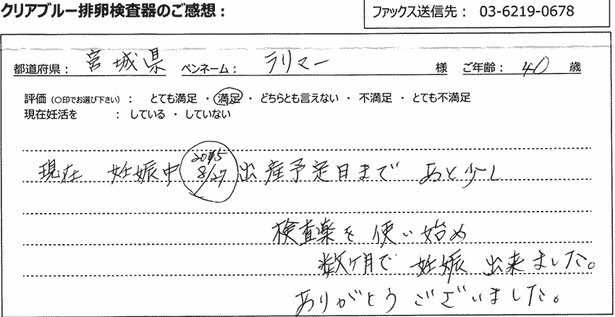 クリアブルー排卵検査器のご感想：
ファックス送信先： 03-6219-0678
都道府県： 宮城県 ペンネーム： ラリマー 様 ご年齢： 40 歳
評価（○印でお選び下さい） ： とても満足 ・ 満足 ・ どちらとも言えない ・ 不満足 ・ とても不満足
現在妊活を ： している ・ していない
現在 妊娠中 2015 8/27 出産予定日まで あと少し
検査薬を使い始め
数ヶ月で妊娠出来ました。
ありがとうございました。